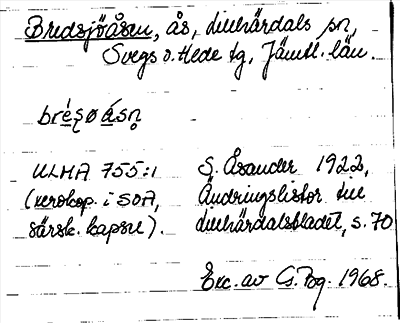 Bredsjöåsen, ås, Lillhärdals sn,
Svegs o. Hede tg, Jämtl. län.
bre̜søásn̥
ULMA 755:1 S. Åsander 1922,
(xerokop. i SOA, Ändringslistor till
särsk. kapsel). Lillhärdalsbladet, s. 70
Exc. av G. Bg. 1968.